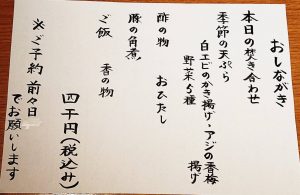 おしながき
本日の焚き合わせ
季節の天ぷら
白エビのかき揚げ・アジの香梅揚げ
野菜5種
酢の物　おひたし
豚の角煮
ご飯　香の物
四千円(税込み)
※ご予約前々日
でお願いします